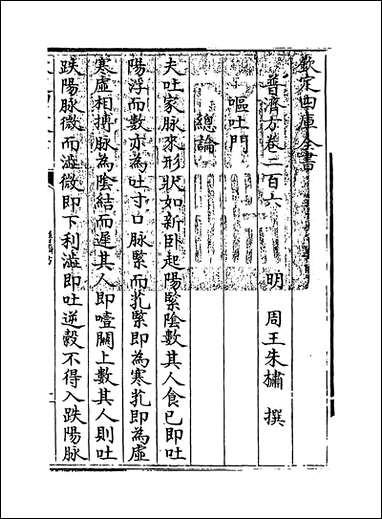 欽定四庫全書
普濟方卷二百六
明 周王朱橚 撰
嘔吐門
總論
夫吐家脈來形狀如新卧起陽緊陰數其人食已即吐
陽浮而數亦為吐寸口脈緊而芤緊即為寒芤即為虛
寒虛相搏脈為陰結而遲其人即噎關上數其人則吐
趺陽脈微而澁微即下利澁即吐逆穀不得入趺陽脈